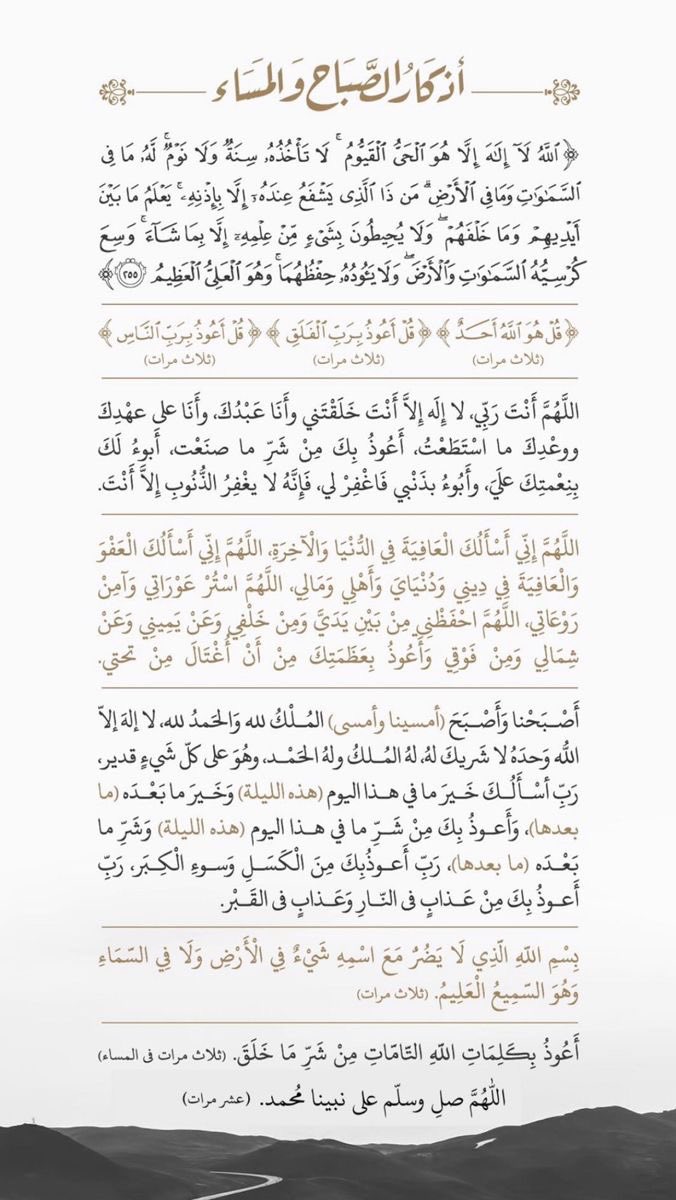 أذكار الصَّبَاح وَالمَسَاء
﴿ ٱللَّهُ لَآ إِلَٰهَ إِلَّا هُوَ ٱلْحَىُّ ٱلْقَيُّومُ ۚ لَا تَأْخُذُهُۥ سِنَةٌ وَلَا نَوْمٌ ۚ لَّهُۥ مَا فِى
ٱلسَّمَٰوَٰتِ وَمَا فِى ٱلْأَرْضِ ۗ مَن ذَا ٱلَّذِى يَشْفَعُ عِندَهُۥٓ إِلَّا بِإِذْنِهِۦ ۚ يَعْلَمُ مَا بَيْنَ
أَيْدِيهِمْ وَمَا خَلْفَهُمْ ۖ وَلَا يُحِيطُونَ بِشَىْءٍ مِّنْ عِلْمِهِۦٓ إِلَّا بِمَا شَآءَ ۚ وَسِعَ
كُرْسِيُّهُ ٱلسَّمَٰوَٰتِ وَٱلْأَرْضَ ۖ وَلَا يَـُٔودُهُۥ حِفْظُهُمَا ۚ وَهُوَ ٱلْعَلِىُّ ٱلْعَظِيمُ ٢٥٥ ﴾
﴿ قُلْ هُوَ ٱللَّهُ أَحَدٌ ﴾ ﴿ قُلْ أَعُوذُ بِرَبِّ ٱلْفَلَقِ ﴾ ﴿ قُلْ أَعُوذُ بِرَبِّ ٱلنَّاسِ ﴾
(ثلاث مرات) (ثلاث مرات) (ثلاث مرات)
اللَّهُمَّ أَنْتَ رَبِّي، لا إِلَه إِلاَّ أَنْتَ خَلَقْتَني وأَنَا عَبْدُكَ، وأَنَا على عهْدِكَ
ووعْدِكَ ما اسْتَطَعْتُ، أَعُوذُ بِكَ مِنْ شَرِّ ما صنَعْت، أَبوءُ لَكَ
بِنِعْمتِكَ عليَ، وأَبُوءُ بذَنْبي فَاغْفِرْ لي، فَإِنَّهُ لا يغْفِرُ الذُّنُوبِ إِلاَّ أَنْتَ.
اللَّهُمَّ إِنِّي أَسْأَلُكَ الْعَافِيَةَ فِي الدُّنْيَا وَالْآخِرَةِ، اللَّهُمَّ إِنِّي أَسْأَلُكَ الْعَفْوَ
وَالْعَافِيَةَ فِي دِينِي وَدُنْيَايَ وَأَهْلِي وَمَالِي، اللَّهُمَّ اسْتُرْ عَوْرَاتِي وَآمِنْ
رَوْعَاتِي، اللَّهُمَّ احْفَظْنِي مِنْ بَيْنِ يَدَيَّ وَمِنْ خَلْفِي وَعَنْ يَمِينِي وَعَنْ
شِمَالِي وَمِنْ فَوْقِي وَأَعُوذُ بِعَظَمَتِكَ مِنْ أَنْ أُغْتَالَ مِنْ تحتي.
أَصْبَحْنا وَأَصْبَحَ (أمسينا وأمسى) المُلْكُ لله وَالحَمدُ لله، لا إلهَ إلاّ
اللّه وَحدَهُ لا شريكَ لهُ، لهُ المُلكُ ولهُ الحَمْد، وهُوَ على كلّ شَيءٍ قدير،
رَبِّ أسْأَلُكَ خَيرَ ما في هذا اليوم (هذه الليلة) وَخَيرَ ما بَعْدَه (ما
بعدها)، وَأَعوذُ بِكَ مِنْ شَرِّ ما في هذا اليوم (هذه الليلة) وَشَرِّ ما
بَعْدَه (ما بعدها)، رَبِّ أَعوذُبِكَ مِنَ الْكَسَلِ وَسوءِ الْكِبَر، رَبِّ
أَعوذُ بِكَ مِنْ عَذابٍ في النّارِ وَعَذابٍ في القَبْر.
بِسْمِ اللّهِ الّذِي لَا يَضُرُّ مَعَ اسْمِهِ شَيْءٌ فِي الْأَرْضِ وَلَا فِي السّمَاءِ
وَهُوَ السّمِيعُ الْعَلِيمُ. (ثلاث مرات)
أَعُوذُ بِكَلِمَاتِ اللّهِ التّامّاتِ مِنْ شَرِّ مَا خَلَقَ. (ثلاث مرات في المساء)
اللَّهُمَّ صلِ وسلّم على نبينا مُحمد. (عشر مرات)